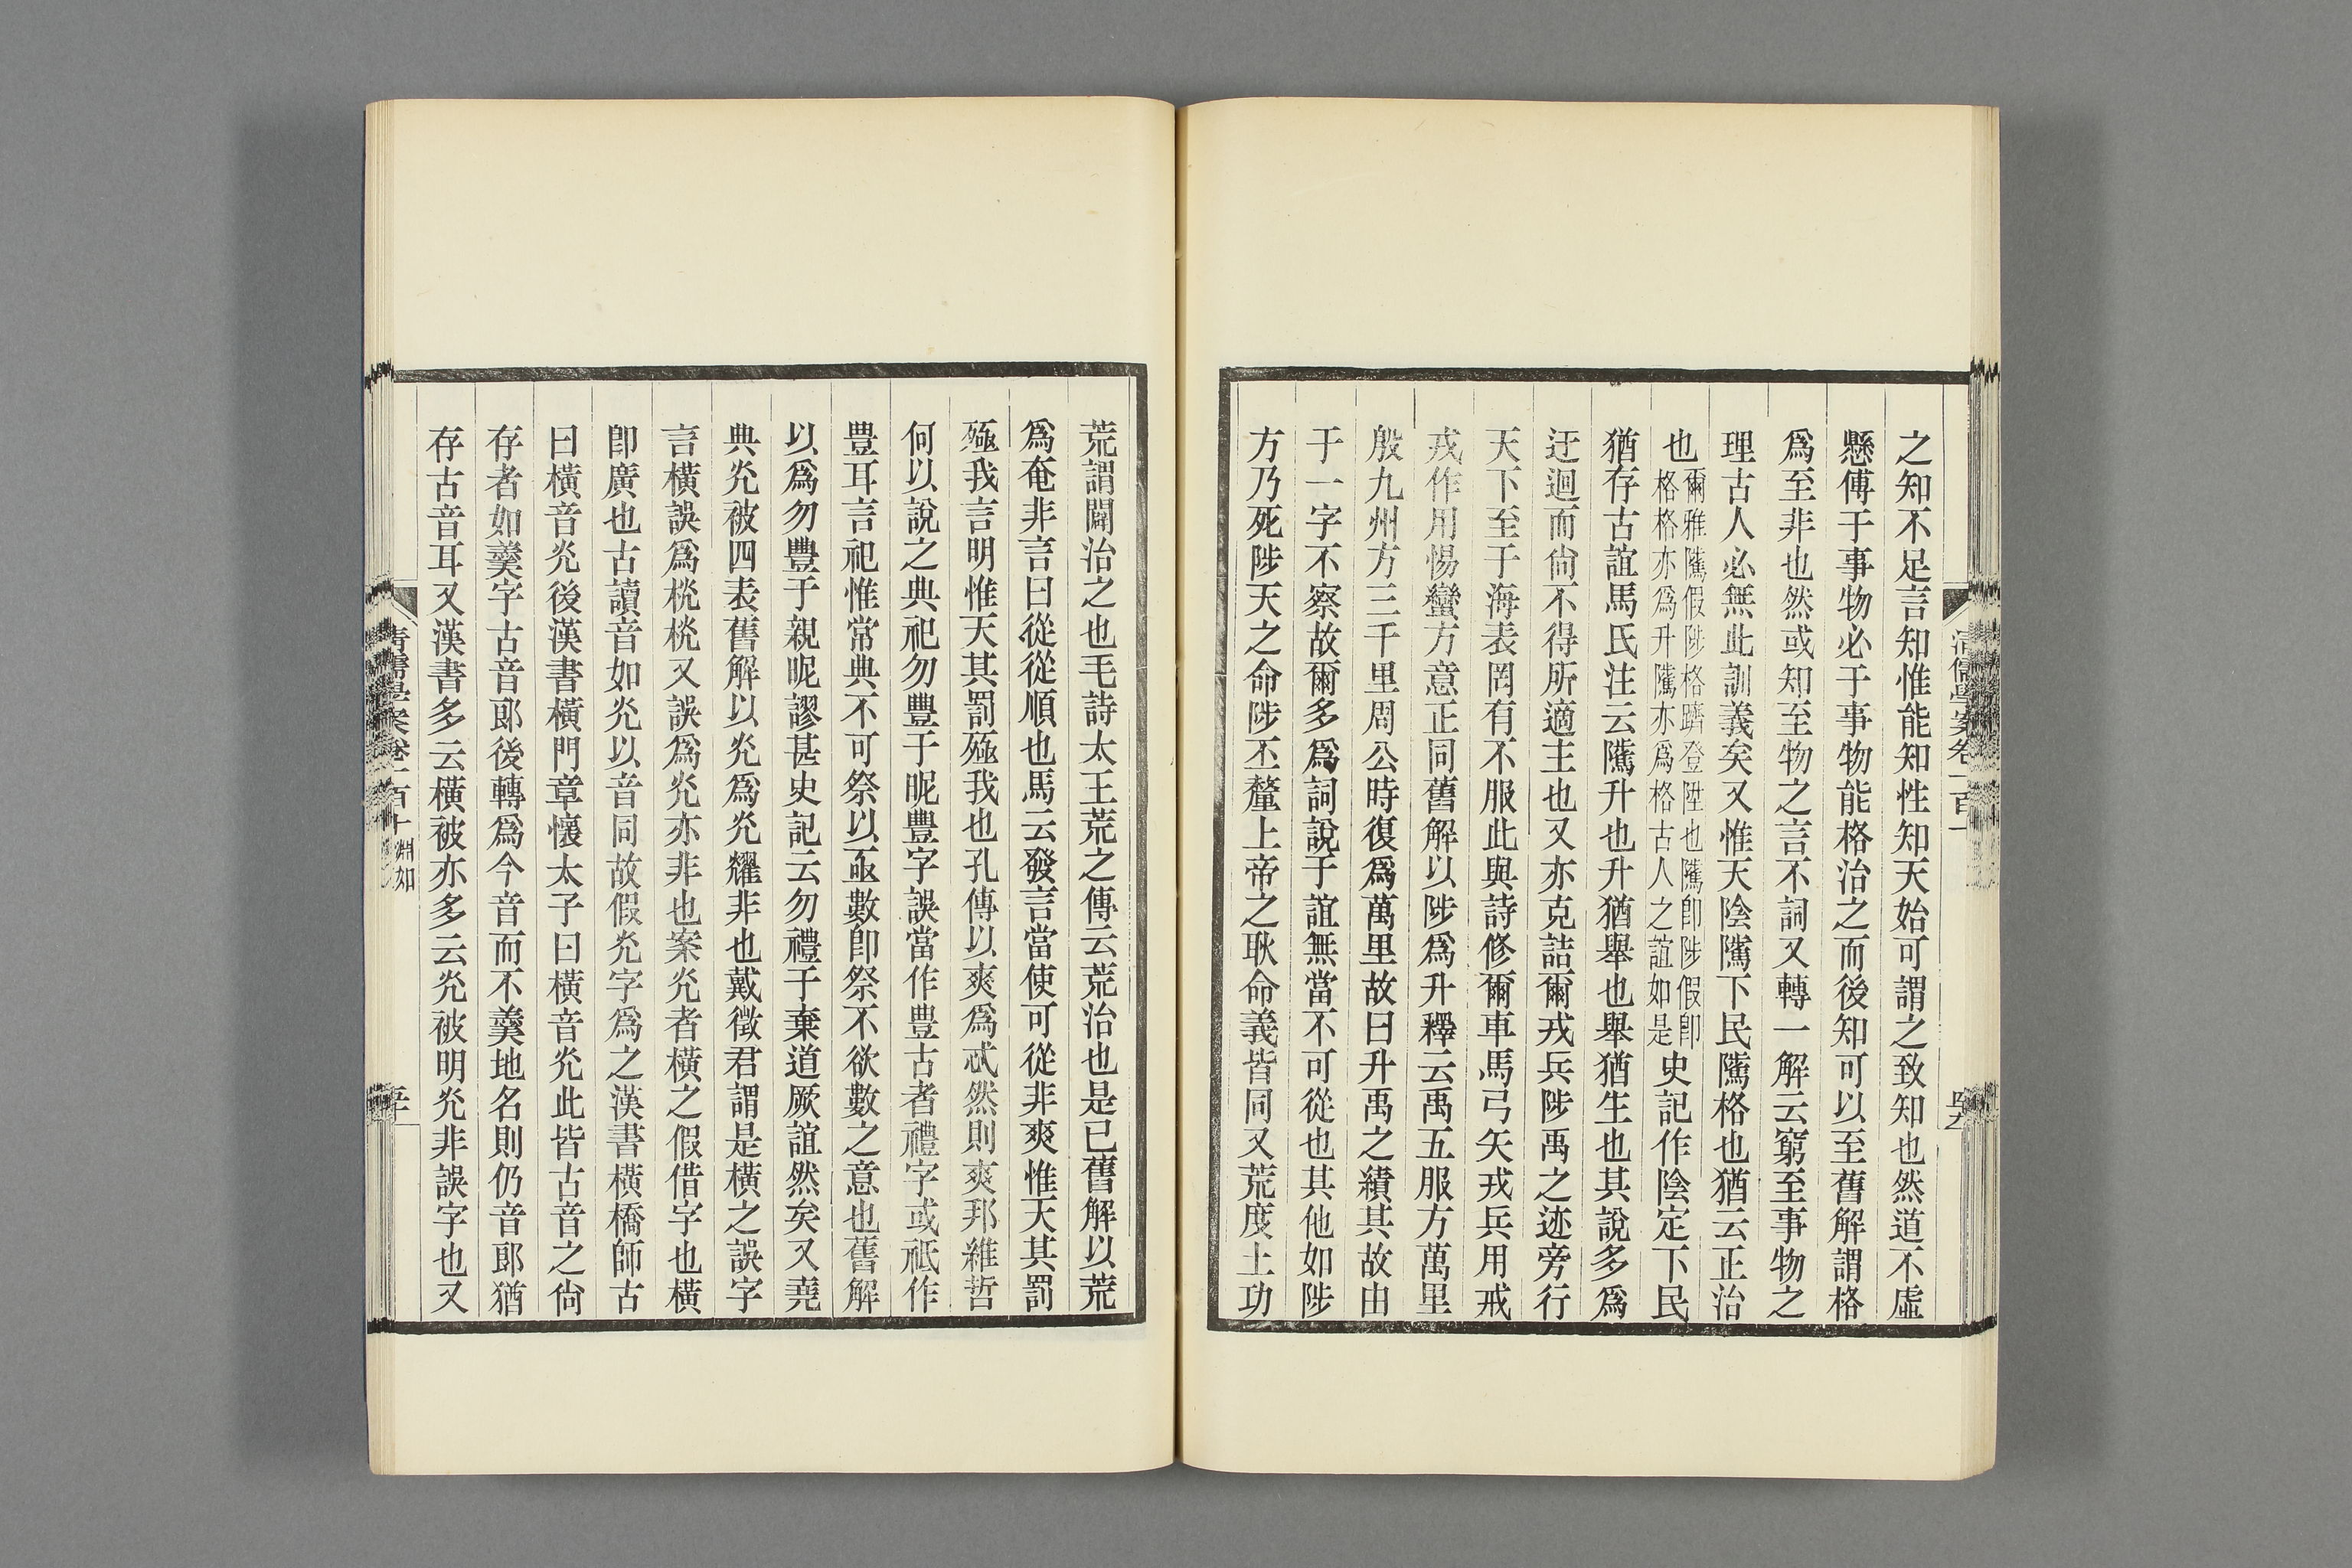 之知不足言知惟能知性知天始可謂之致知也然道不虛
懸傅于事物必于事物能格治之而後知可以至舊解謂格
爲至非也然或知至物之言不詞又轉一解云窮至事物之
理古人必無此訓義矣又惟天陰隲下民隲格也猶云正治
也爾雅隲假陟格躋登陞也隲卽陟假卽格格亦爲升隲亦爲格古人之誼如是史記作陰定下民
猶存古誼馬氏注云隲升也升猶舉也舉猶生也其說多爲
迂迴而尙不得所適主也又亦克詰爾戎兵陟禹之迹旁行
天下至于海表罔有不服此與詩修爾車馬弓矢戎兵用戒
戎作用惕蠻方意正同舊解以陟爲升釋云禹五服方萬里
殷九州方三千里周公時復爲萬里故曰升禹之績其故由
于一字不察故爾多爲詞說于誼無當不可從也其他如陟
方乃死陟天之命陟丕釐上帝之耿命義皆同又荒度土功
荒謂闢治之也毛詩太王荒之傳云荒治也是已舊解以荒
爲奄非言曰從從順也馬云發言當使可從非爽惟天其罰
殛我言明惟天其罰殛我也孔傳以爽爲忒然則爽邦維哲
何以說之典祀勿豐于昵豐字誤當作豊古者禮字或祗作
豊耳言祀惟常典不可祭以亟數卽祭不欲數之意也舊解
以爲勿豐于親昵謬甚史記云勿禮于棄道厥誼然矣又堯
典灮被四表舊解以灮爲灮耀非也戴徵君謂是橫之誤字
言橫誤爲桄桄又誤爲灮亦非也案灮者橫之假借字也橫
卽廣也古讀音如灮以音同故假灮字爲之漢書橫橋師古
曰橫音灮後漢書橫門章懷太子曰橫音灮此皆古音之尙
存者如羹字古音郞後轉爲今音而不羹地名則仍音郞猶
存古音耳又漢書多云橫被亦多云灮被明灮非誤字也又
淵如